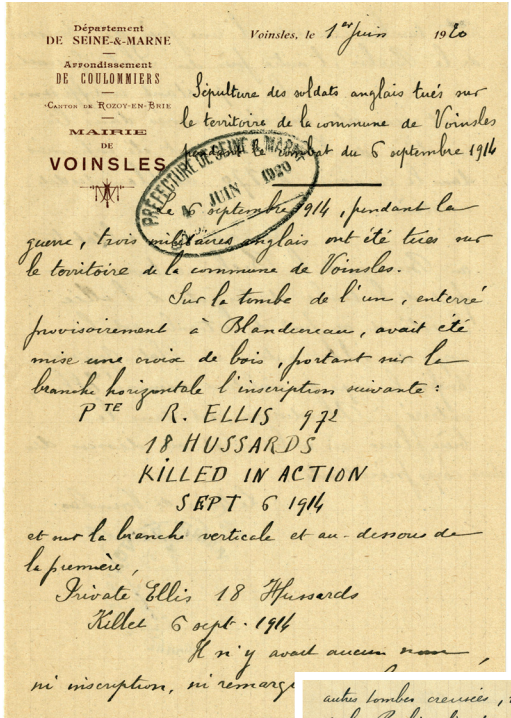 Département
DE SEINE-&-MARNE
Arrondissement
DE COULOMMIERS
CANTON DE ROZOY-EN-BRIE
MAIRIE
DE
VOINSLES
Voinsles, le 1er Juin 1920
Sépulture des soldats anglais tués sur
le territoire de la commune de Voinsles
pendant le combat du 6 septembre 1914
PRÉFECTURE DE SEINE & MARNE
JUIN 1920
Le 6 septembre 1914, pendant la
guerre, trois militaires anglais ont été tués sur
le territoire de la commune de Voinsles.
Sur la tombe de l'un, enterré
provisoirement à Blandureau, avait été
mise une croix de bois, portant sur la
branche horizontale l'inscription suivante :
PTE R. ELLIS 972
18 HUSSARDS
KILLED IN ACTION
SEPT 6 1914
et sur la branche verticale et au-dessous de
la première,
Private Ellis 18 Hussards
Killet 6 sept. 1914
Il n'y avait aucun nom,
ni inscription, ni
autres tombes creusées,